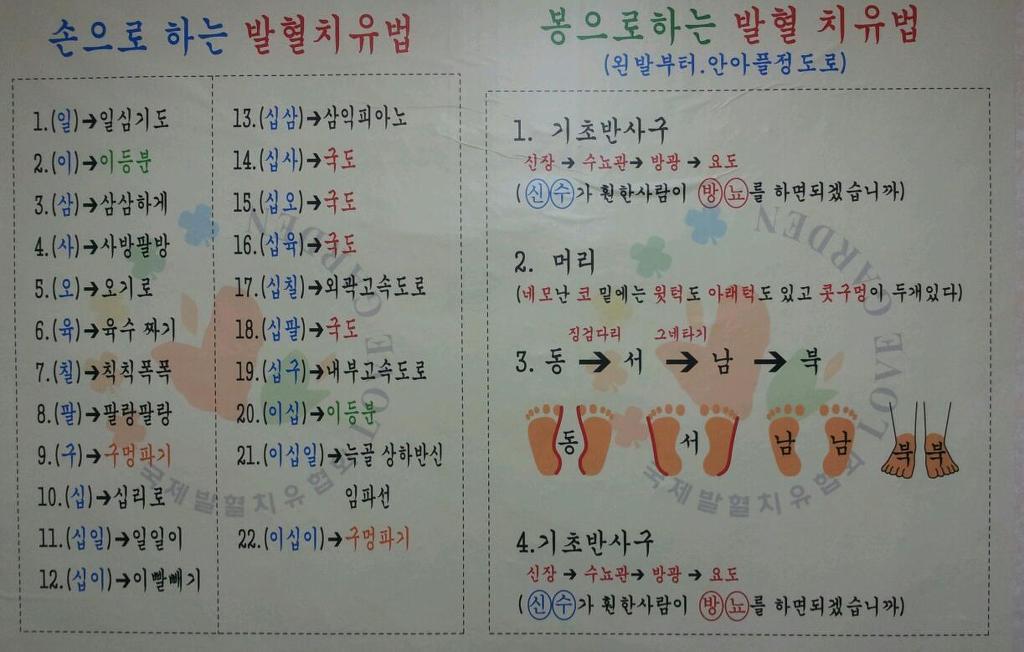 손으로 하는 발혈치유법
1.(일)→일심기도
2.(이)→이등분
3.(삼)→삼삼하게
4.(사)→사방팔방
5.(오)→오기로
6.(육)→육수 짜기
7.(칠)→칙칙폭폭
8.(팔)→팔랑팔랑
9.(구)→구멍파기
10.(십)→십리로
11.(십일)→일일이
12.(십이)→이빨빼기
13.(십삼)→삼익피아노
14.(십사)→국도
15.(십오)→국도
16.(십육)→국도
17.(십칠)→외곽고속도로
18.(십팔)→국도
19.(십구)→내부고속도로
20.(이십)→이등분
21.(이십일)→늑골 상하반신
임파선
22.(이십이)→구멍파기
봉으로하는 발혈 치유법
(왼발부터.안아플정도로)
1. 기초반사구
신장 → 수뇨관→ 방광 → 요도
(신수가 훤한사람이 방뇨를 하면되겠습니까)
2. 머리
(네모난 코 밑에는 윗턱도 아래턱도 있고 콧구멍이 두개있다)
징검다리 그네타기
3. 동 → 서 → 남 → 북
동 서 남 남 북 북
4.기초반사구
신장 → 수뇨관→ 방광 → 요도
(신수가 훤한사람이 방뇨를 하면되겠습니까)
LOVE GARDEN
국제발혈치유협회
LOVE GARDEN
국제발혈치유협회